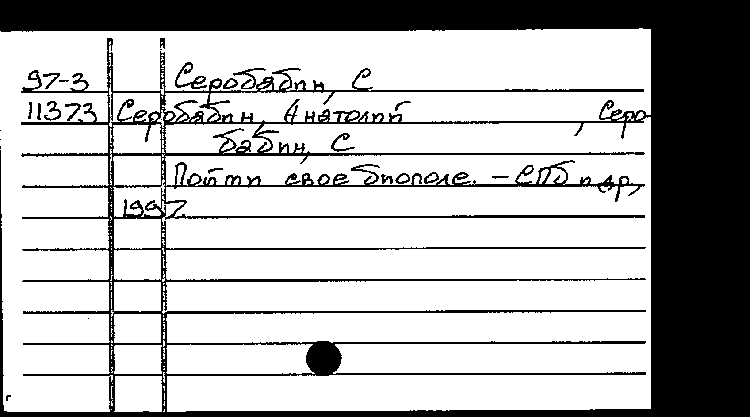 97-3 Серобабин, С
11373 Серобабин, Анатолий , Серо-
бабин, С
Пойти свое биополе. – СПб и др,
1997.